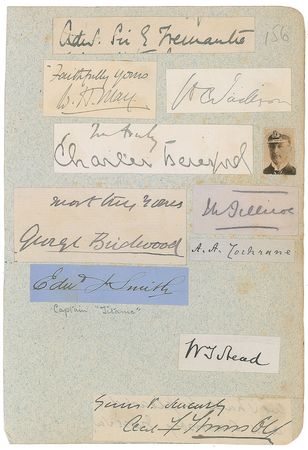 Adml. Sir E Fremantle
156
Faithfully yours
W. H. May
H B Jackson
Yrs truly
Charles Beresford
most truly yours
George Birdwood
Jellicoe
A. A. Cochrane
Edwd J Smith
Captain "Titanic"
W T Stead
Yours
Cecil F